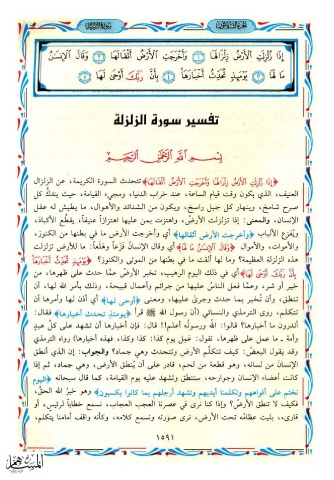 إِذَا زُلْزِلَتِ الْأَرْضُ زِلْزَالَهَا ۝١ وَأَخْرَجَتِ الْأَرْضُ أَثْقَالَهَا ۝٢ وَقَالَ الْإِنسَانُ
مَا لَهَا ۝٣ يَوْمَئِذٍ تُحَدِّثُ أَخْبَارَهَا ۝٤ بِأَنَّ رَبَّكَ أَوْحَى لَهَا ۝٥
تفسير سورة الزلزلة
بِسْمِ اللَّهِ الرَّحْمَٰنِ الرَّحِيمِ
﴿إِذَا زُلْزِلَتِ الْأَرْضُ زِلْزَالَهَا وَأَخْرَجَتِ الْأَرْضُ أَثْقَالَهَا﴾ تتحدث السورة الكريمة، عن الزلزال
العنيف، الذي يكون وقت قيام الساعة، عند خراب الدنيا، ومجيء القيامة، حيث يندكُّ كل
صرح شامخ، وينهار كل جبل راسخ، ويكون من الشدائد والأهوال، ما يطيش له عقل
الإنسان، والمعنى: إذا تزلزلت الأرضُ، واهتزت بمن عليها اهتزازاً عنيفاً، يقطِّع الأكباد،
ويُفزع الألباب ﴿وأخرجت الأرض أثقالها﴾ أي وأخرجت الأرض ما في بطنها من الكنوز،
والأموات، والأموال ﴿وَقَالَ الْإِنسَانُ مَا لَهَا﴾ أي وقال الإنسانُ فَزَعاً وهَلَعاً: ما للأرض تزلزلت
هذه الزلزلة العظيمة؟ وما لها ألقت ما في بطنها من الموتى والكنوز؟ ﴿يَوْمَئِذٍ تُحَدِّثُ أَخْبَارَهَا
بِأَنَّ رَبَّكَ أَوْحَى لَهَا﴾ أي في ذلك اليوم الرهيب، تخبر الأرضُ عمَّا حدث على ظهرها، من
خير أو شر، وعمَّا فعل الناسُ عليها من جرائم وأعمال قبيحة، وذلك بأمر الله لها، أن
تنطق، وأن تُخبر بما حدث وجرى عليها، ومعنى ﴿أوحى لها﴾ أي أذن لها وأمرها أن
تتكلم، روى الترمذي والنسائي (أن رسول الله ﷺ قرأ ﴿يومئذٍ تحدث أخبارها﴾ فقال:
أتدرون ما أخبارها؟ قالوا: اللهُ ورسولُه أعلم!! قال: فإن أخبارها أن تشهد على كلِّ عبدٍ
وأمة ـ ما عمل على ظهرها، تقول: عمل يوم كذا: كذا وكذا، فهذه أخبارها) رواه الترمذي
وقد يقول البعضُ: كيف تتكلَّم الأرض وتتحدث وهي جماد؟ والجواب: إن الذي أنطق
الإنسان من لسانه، وهو قطعة من لحم، قادر على أن يُنطق الأرض، وهي جماد، ثم إذا
كانت أعضاء الإنسان وجوارحه، ستنطق وتشهد عليه يوم القيامة، كما قال سبحانه ﴿اليوم
نختم على أفواههم وتكلمنا أيديهم وتشهد أرجلهم بما كانوا يكسبون﴾ وهو خبرُ الله الحقُّ،
فكيف لا تنطق الأرض؟ وإذا كنا نرى في عصرنا العجب العجاب، نسمع خطاباً لرئيس، أو
قارىء، بليت عظامُه تحت الأرض، نرى صورته ونسمع كلامه، وكأنه واقف أمامنا يتكلم،
١٥٩١